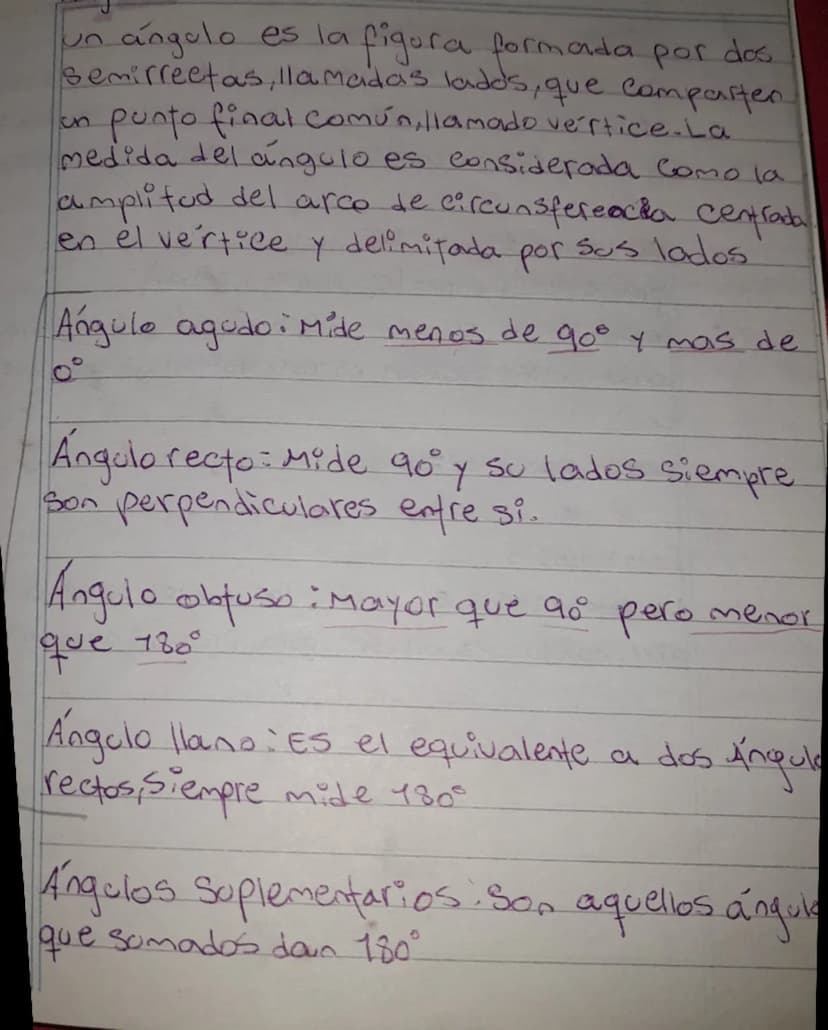 un ángulo es la figura formada por dos
semirrectas, llamadas lados, que comparten
un punto final común, llamado vértice. La
medida del ángulo es considerada como la
amplitud del arco de circunsferencia centrada
en el vértice y delimitada por sus lados
Ángulo agudo: Mide menos de 90° y mas de
0°
Ángulo recto: Mide 90° y su lados siempre
son perpendiculares entre si.
Ángulo obtuso: Mayor que 90° pero menor
que 180°
Ángulo llano: Es el equivalente a dos Ángulo
rectos, siempre mide 180°
Ángulos Suplementarios: Son aquellos ángulo
que sumados dan 180°